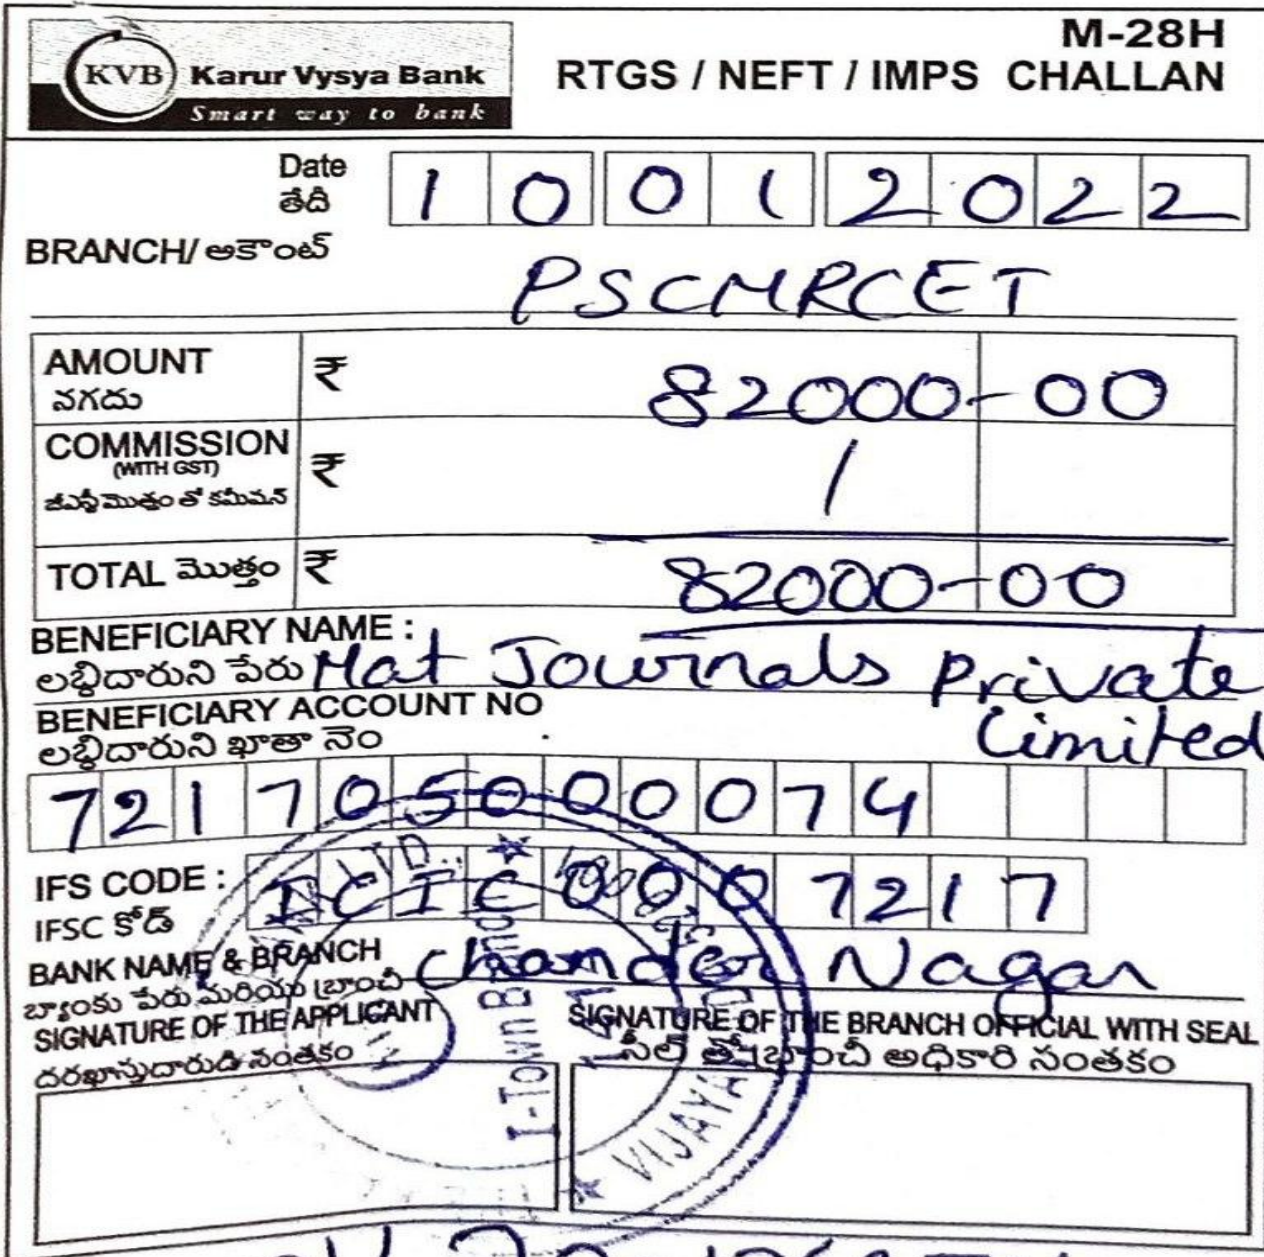 M-28H
KVB Karur Vysya Bank
Smart way to bank
RTGS / NEFT / IMPS CHALLAN
Date
తేదీ
1 0 0 1 2 0 2 2
BRANCH/ అకౌంట్
PSCMRCET
AMOUNT ₹ 82000-00
నగదు
COMMISSION ₹ /
(WITH GST)
జీఎస్టీ మొత్తం తో కమీషన్
TOTAL మొత్తం ₹ 82000-00
BENEFICIARY NAME :
లబ్ధిదారుని పేరు Mat Journals Private
Limited
BENEFICIARY ACCOUNT NO
లబ్ధిదారుని ఖాతా నెం
7 2 1 7 0 5 0 0 0 0 7 4
IFS CODE : I C I C 0 0 0 7 2 1 7
IFSC కోడ్
BANK NAME & BRANCH Chander Nagar
బ్యాంకు పేరు మరియు బ్రాంచీ
SIGNATURE OF THE APPLICANT
దరఖాస్తుదారుడి సంతకం
SIGNATURE OF THE BRANCH OFFICIAL WITH SEAL
సీల్ తో బ్రాంచీ అధికారి సంతకం
LTD.,
I-Town Branch
VIJAYA